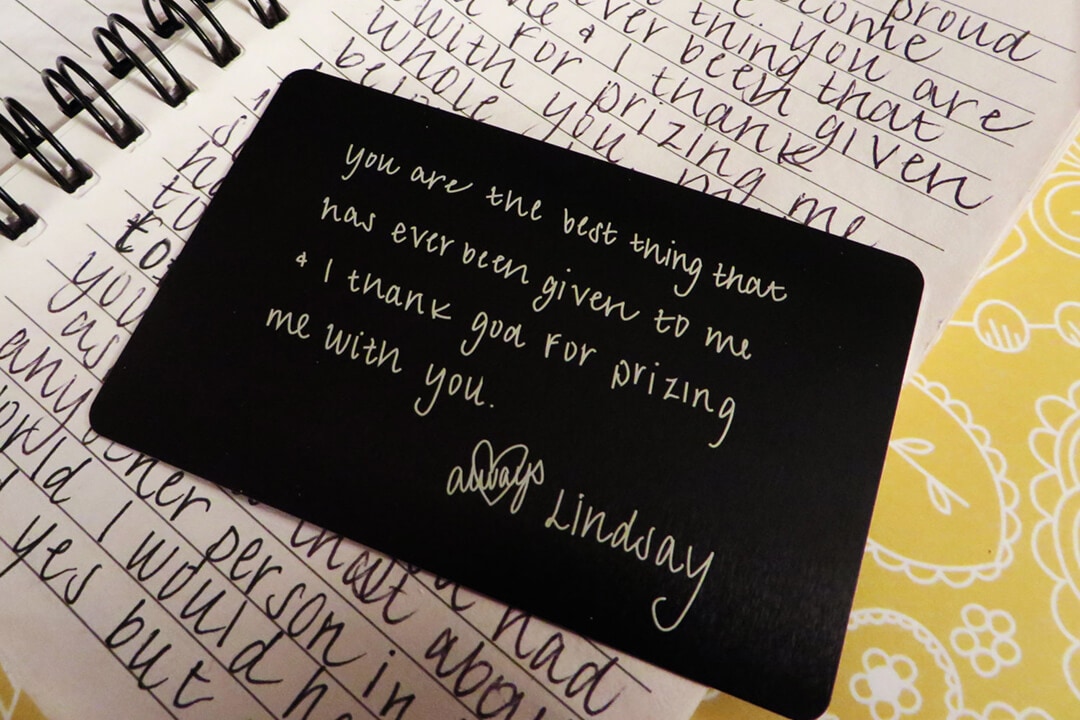 proud
come
you are
thing that
ever been given
& I thank
for prizing me
with you
whole you
you are the best thing that
has ever been given to me
& I thank god for prizing
me with you.
always
Lindsay
you
as
any other person in
world I would
yes but
that had